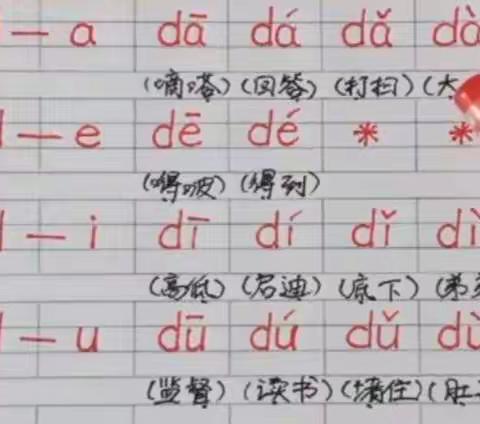 — a dā dá dǎ dà
(嘀嗒) (回答) (打扫) (大
— e dē dé * *
(嘚啵) (得到)
— i dī dí dǐ dì
(高低) (启迪) (底下) (弟
— u dū dú dǔ dù
(监督) (读书) (堵住) (肚